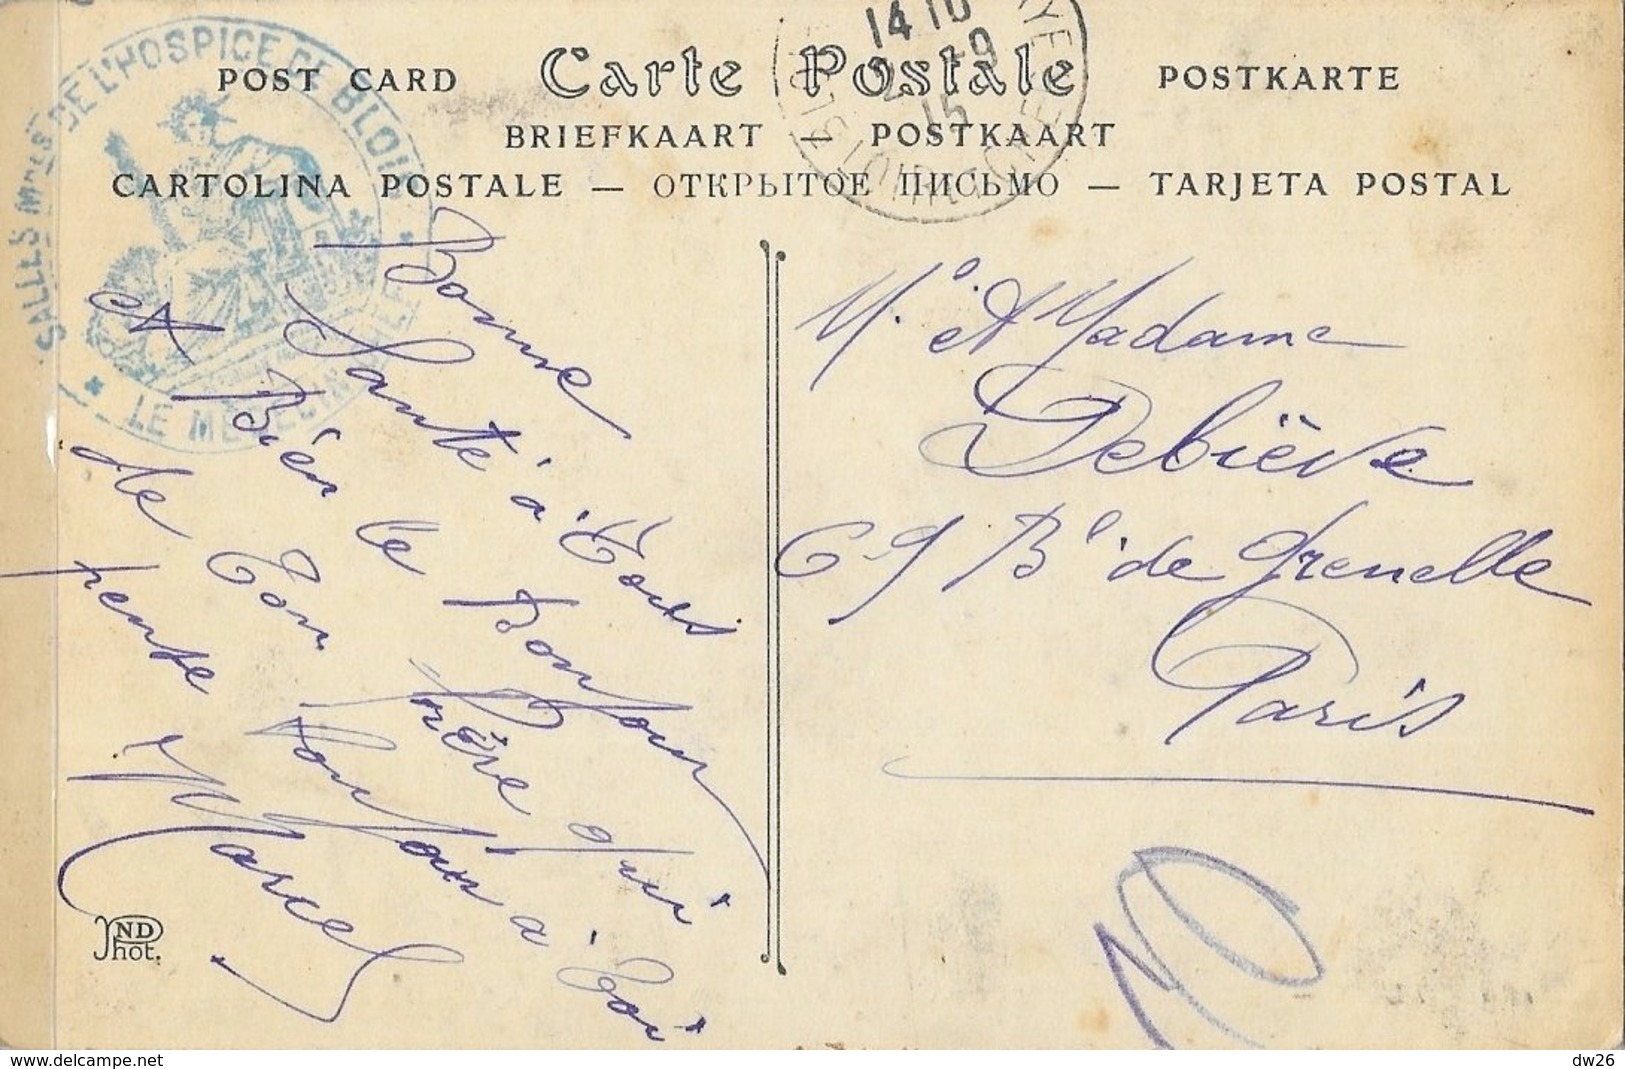 POST CARD Carte Postale POSTKARTE
BRIEFKAART — POSTKAART
CARTOLINA POSTALE — ОТКРЫТОЕ ПИСЬМО — TARJETA POSTAL
SALLES MRES DE L'HOSPICE DE BLOIS
LE MEDECIN CHEF
14 10
2 -9
15
LOIR-ET-CHER
Bonne
Santé à Tous
et Bien le Bonjour
de Ton frère qui
pense toujours à Toi
Marcel
Mr et Madame
Debiève
69 Bd de Grenelle
Paris
ND
Phot.
www.delcampe.net
dw26